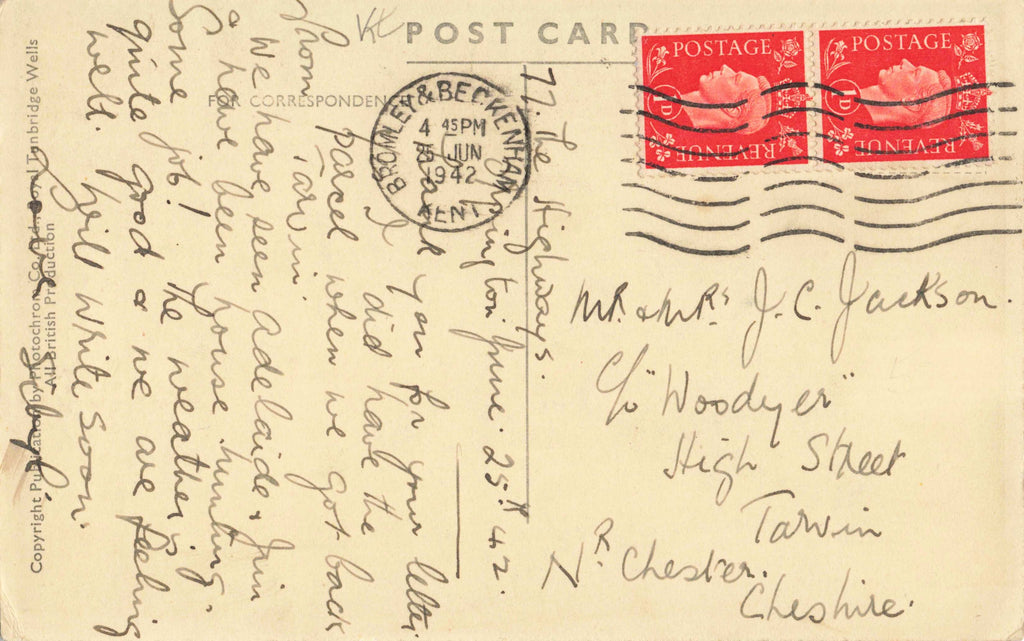 POST CARD
FOR CORRESPONDEN
BROMLEY & BECKENHAM
4 45 PM
25 JUN
1942
KENT
POSTAGE
1D
REVENUE
POSTAGE
1D
REVENUE
77. The Highways.
June. 25th 42.
Thank you for your letter.
I did have the
parcel when we got back
from Tarvin.
We have seen Adelaide &
& have been house hunting.
Some job! The weather is
quite good & we are feeling
well. Will write soon.
Love
Mr. & Mrs J. C. Jackson.
C/o "Woodyer"
High Street
Tarvin
Nr. Chester.
Cheshire.
Copyright Publication by Photochrom Co. Ltd. Tunbridge Wells
All British Production